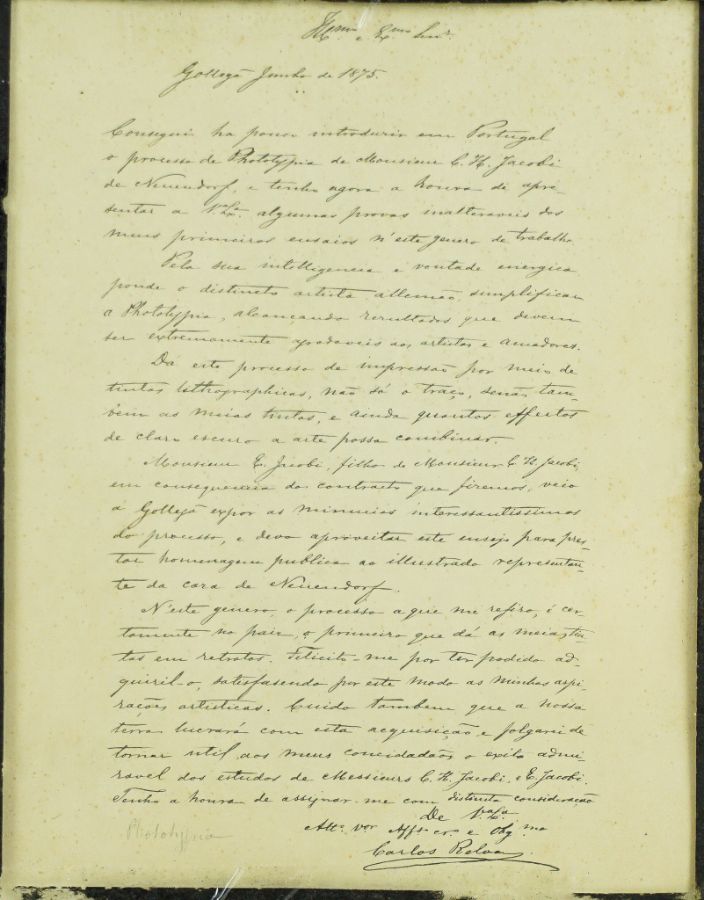 Illmo. e Exmo. Snr.
Gollegã Junho de 1875.
Consegui ha pouco introduzir em Portugal
o processo de Phototypia de Monsieur C. H. Jacobi
de Neuendorf, e tenho agora a honra de apre-
sentar a V. Exa. algumas provas inalteraveis dos
meus primeiros ensaios n'este genero de trabalho.
Pela sua intelligencia e vontade energica
ponde o distincto artista allemão, simplificar
a Phototypia, alcançando resultados que devem
ser extremamente agradaveis aos artistas e amadores.
Dá este processo de impressão por meio de
tintas lithographicas, não só o traço, senão tam-
bem as meias tintas, e ainda quantos effeitos
de claro escuro a arte possa combinar.
Monsieur E. Jacobi, filho de Monsieur C. H. Jacobi,
em consequencia do contracto que fizemos, veio
á Gollegã expor as minucias interessantissimas
do processo, e devo aproveitar este ensejo para pres-
tar homenagem publica ao illustrado representan-
te da casa de Neuendorf.
N'este genero, o processo a que me refiro, é cer-
tamente no paiz, o primeiro que dá as meias tin-
tas em retratos. Felicito-me por ter podido ad-
quiril-o, satisfasendo por este modo as minhas aspi-
rações artisticas. Cuido tambem que a nossa
terra lucrará com esta acquisição, e folgarei de
tornar util aos meus concidadãos o exito admi-
ravel dos estudos de Messieurs C. H. Jacobi, e E. Jacobi.
Tenho a honra de assignar-me com distincta consideração
De V. Exa.
Atto. Vor. Affo. cr. e Obgmo
Carlos Relvas
Phototypia